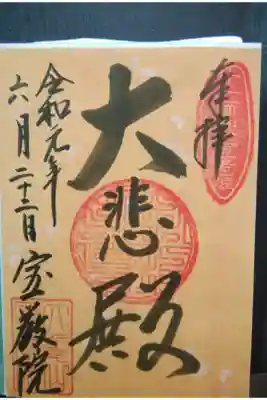 奉拝
大悲殿
令和元年
六月二十二日
宝厳院